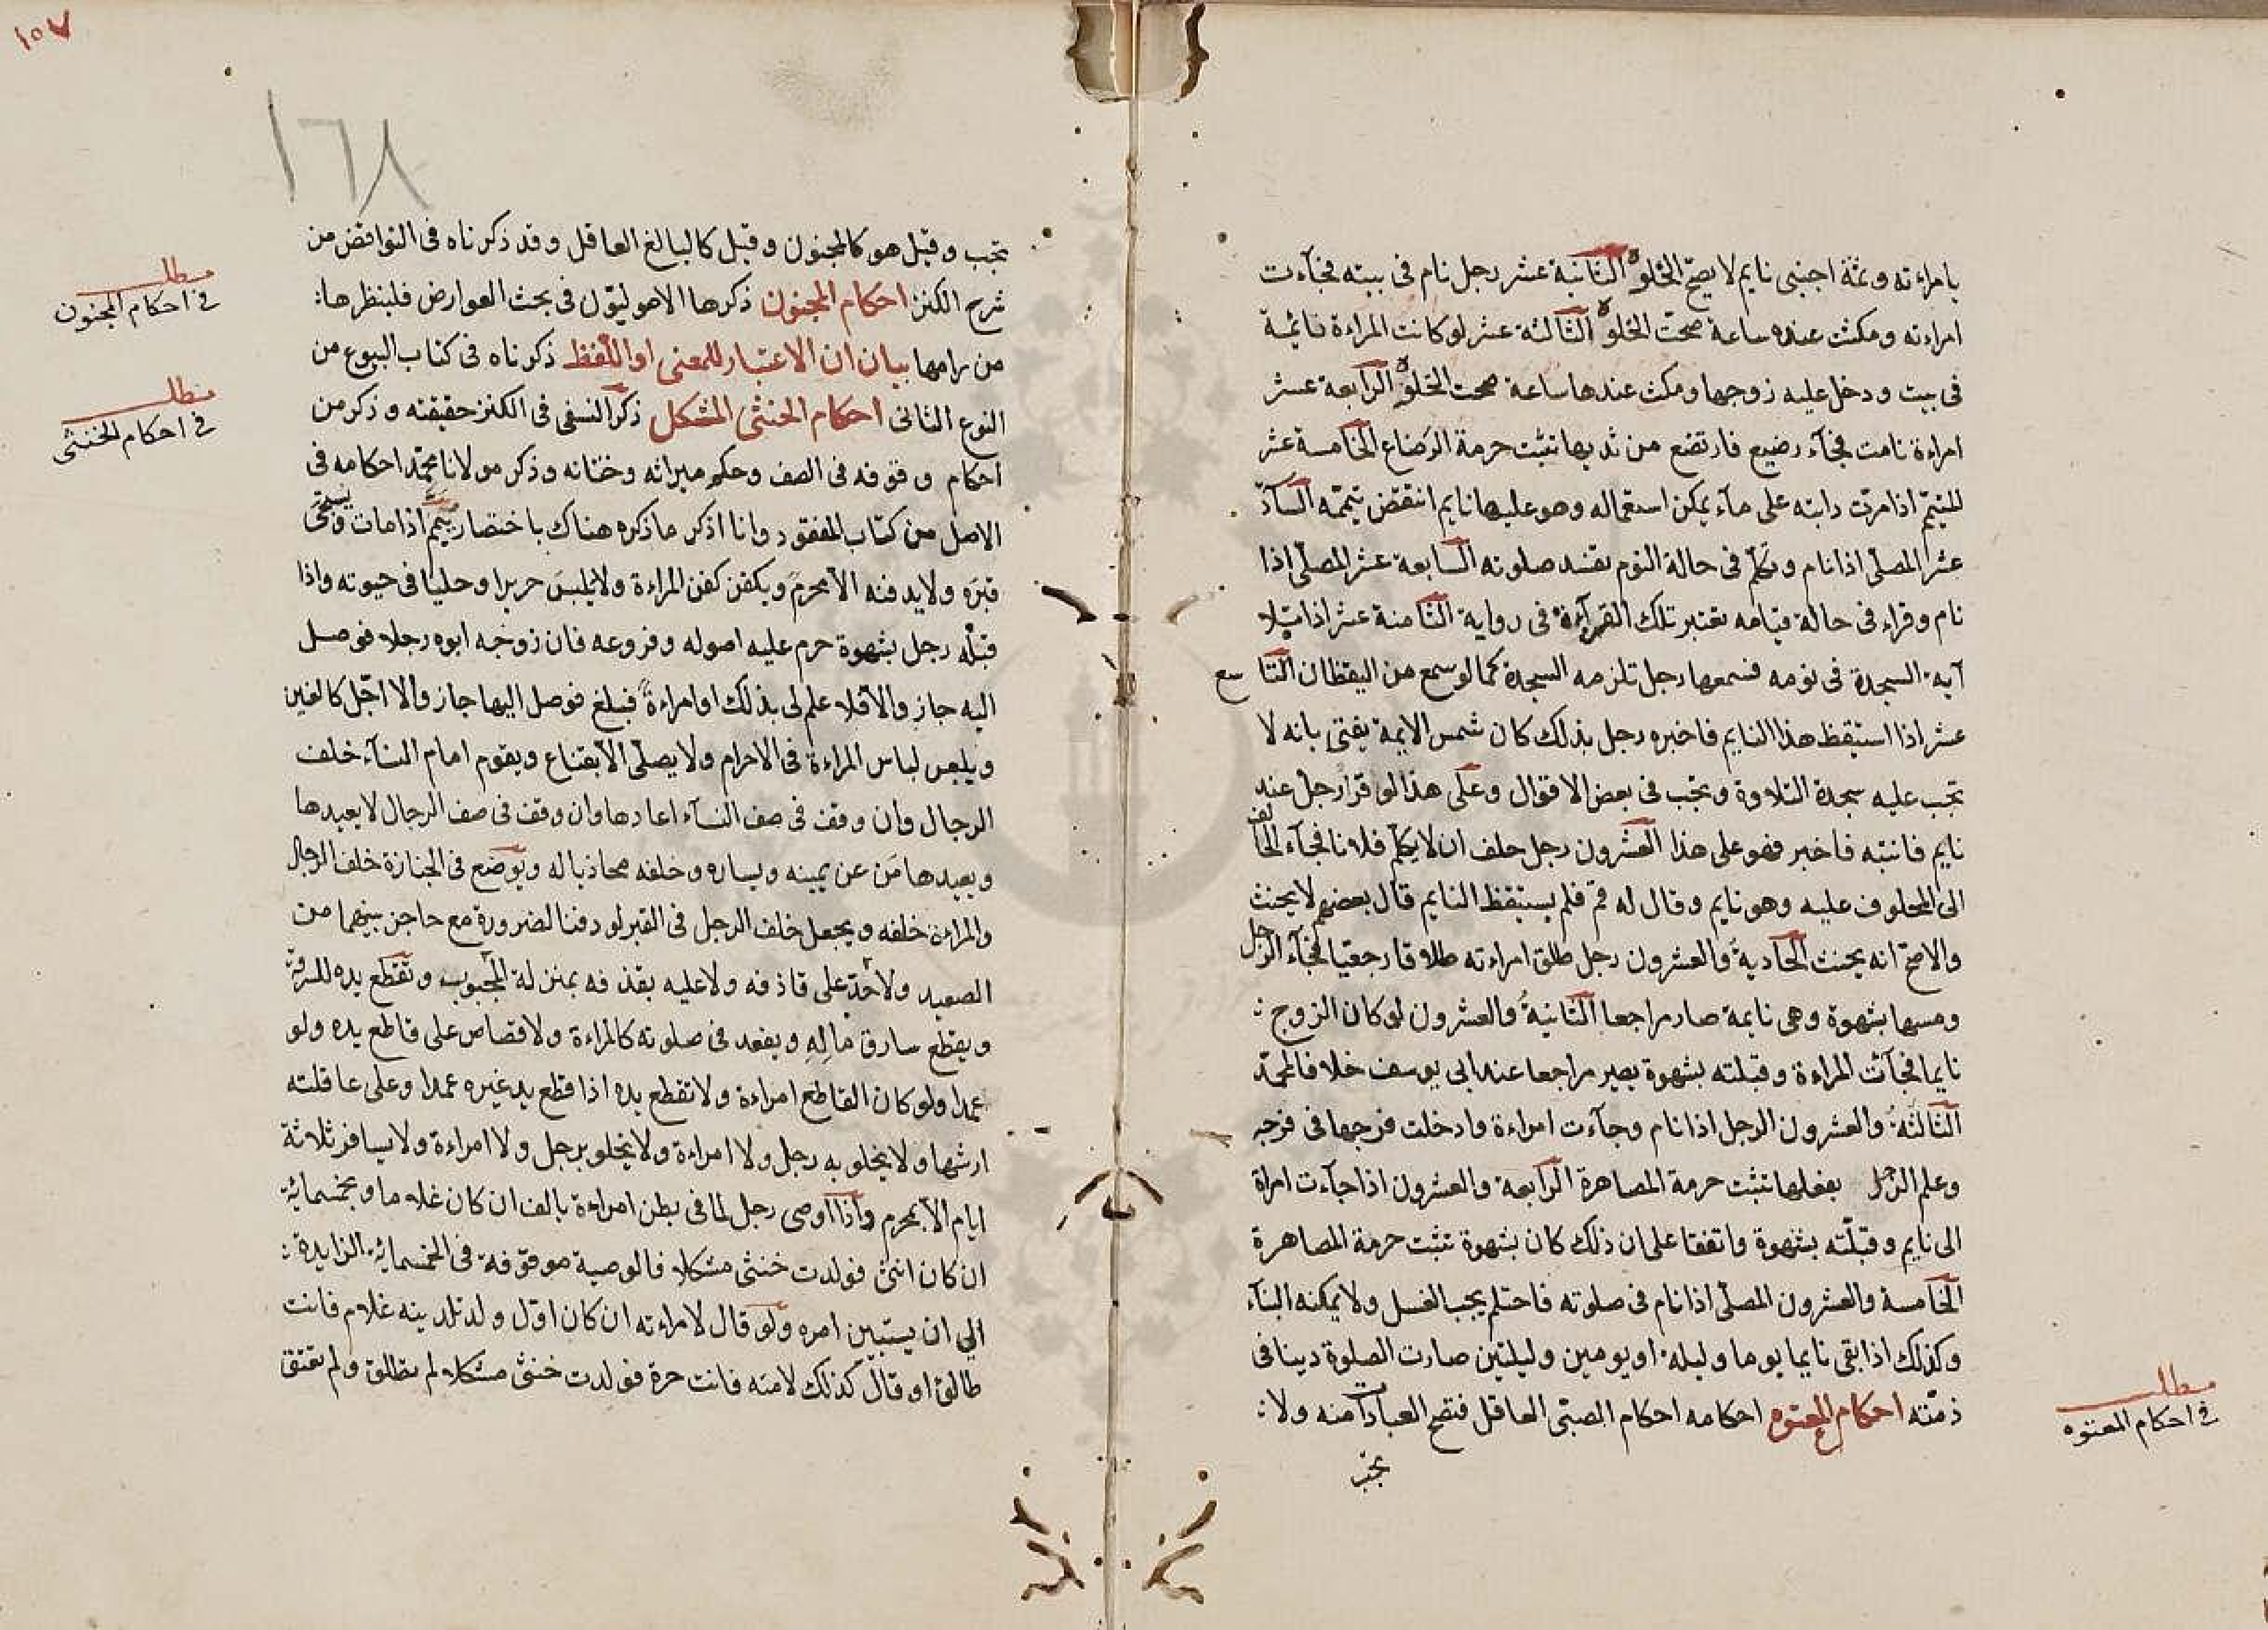 بامراءته وثمة اجنبى نايم لا يصح الخلوة الثانية عشر رجل نام فى بيته فجآءت
امراءته ومكثت عنده ساعة صحت الخلوة الثالثة عشر لو كانت المراءة نائمة
فى بيت ودخل عليه زوجها ومكث عندها ساعة صحت الخلوة الرابعة عشر
امراءة نامت فجآء رضيع فارتضع من ثديها تثبت حرمة الرضاع الخامسة عشر
للتيمم اذا مرت دابته على مآء يمكن استعماله وهو عليها نايم انتقض تيممه السآدّ
عشر المصلى اذا نام وتكلم فى حالة النوم تفسد صلوته السابعة عشر المصلى اذا
نام وقراء فى حالة قيامه تعتبر تلك القرآءة فى رواية الثامنة عشر اذا تلا
آية السجدة فى نومه فسمعها رجل تلزمه السجدة كما لو سمع من اليقظان التاسع
عشر اذا استيقظ هذا النايم فاخبره رجل بذلك كان شمس الايمة يفتى بانه لا
تجب عليه سجدة التلاوة وتجب فى بعض الاقوال وعلى هذا لو قرأ رجل عند
نايم فانتبه فاخبر فهو على هذا العشرون رجل حلف ان لا يكلم فلانا فجآء الحالف
الى المحلوف عليه وهو نايم وقال له قم فلم يستيقظ النايم قال بعضهم لا يحنث
والاصح انه يحنث الحادية والعشرون رجل طلق امراءته طلاقا رجعيا فجآء الرجل
ومسها بشهوة وهى نايمة صار مراجعا الثانية والعشرون لو كان الزوج
نايما فجآئت المراءة وقبلته بشهوة يصير مراجعا عند ابى يوسف خلافا لمحمد
الثالثة والعشرون الرجل اذا نام وجآءت امراءة وادخلت فرجها فى فرجه
وعلم الرجل بفعلها تثبت حرمة المصاهرة الرابعة والعشرون اذا جآءت امراة
الى نايم وقبلته بشهوة واتفقا على ان ذلك كان بشهوة تثبت حرمة المصاهرة
الخامسة والعشرون المصلى اذا نام فى صلوته فاحتلم يجب الغسل ولا يمكنه البنآء
وكذلك اذا بقى نايما يوما وليلة او يومين وليلتين صارت الصلوة دينا فى
ذمته احكام المعتوه احكامه احكام الصبى العاقل فتصح العبادات منه ولا
تجب
مطلب
فى احكام المعتوه
١٥٧
١٦٨
تجب وقيل هو كالمجنون وقيل كالبالغ العاقل وقد ذكرناه فى النواقض من
شرح الكنز احكام المجنون ذكرها الاصوليّون فى بحث العوارض فلينظرها
من رامها بيان ان الاعتبار للمعنى او اللفظ ذكرناه فى كتاب البيوع من
النوع الثانى احكام الخنثى المشكل ذكر النسفى فى الكنز حقيقته وذكر من
احكام وقوفه فى الصف وحكم ميراثه وختانه وذكر مولانا محمد احكامه فى
الاصل من كتاب المفقود وانا اذكر ما ذكره هناك باختصار ييمم اذا مات ويسجّى
قبره ولا يدفنه الا محرم ويكفن كفن المراءة ولا يلبس حريرا وحليا فى حيوته واذا
قبله رجل بشهوة حرم عليه اصوله وفروعه فان زوجه ابوه رجلا فوصل
اليه جاز والا فلا علم لى بذلك او امراءة فبلغ فوصل اليها جاز والا اجل كالعنين
ويلبس لباس المراءة فى الاحرام ولا يصلى الا بقناع ويقوم امام النسآء خلف
الرجال وان وقف فى صف النسآء اعادها وان وقف فى صف الرجال لا يعيدها
ويعيدها من عن يمينه ويساره وخلفه محاذيا له ويوضع فى الجنازة خلف الرجال
والمراءة خلفه ويجعل خلف الرجل فى القبر لو دفنا لضرورة مع حاجز بينهما من
الصعيد ولا حد على قاذفه ولا عليه بقذفه بمنزلة المجبوب وتقطع يده للسرقة
ويقطع سارق ماله ويقعد فى صلوته كالمراءة ولا قصاص على قاطع يده ولو
عمدا ولو كان القاطع امراءة ولا تقطع يده اذا قطع يد غيره عمدا وعلى عاقلته
ارشها ولا يخلو به رجل ولا امراءة ولا يخلو برجل ولا امراءة ولا يسافر ثلاثة
ايام الا بمحرم واذا اوصى رجل لما فى بطن امراءة بالف ان كان غلاما وبخمسمائة
ان كان انثى فولدت خنثى مشكلا فالوصية موقوفة فى الخمسمائة الزايدة
الى ان يستبين امره ولو قال لامراءته ان كان اول ولد تلدينه غلام فانت
طالق او قال كذلك لامته فانت حرة فولدت خنثى مشكلا لم تطلق ولم تعتق
مطلب
فى احكام المجنون
مطلب
فى احكام الخنثى